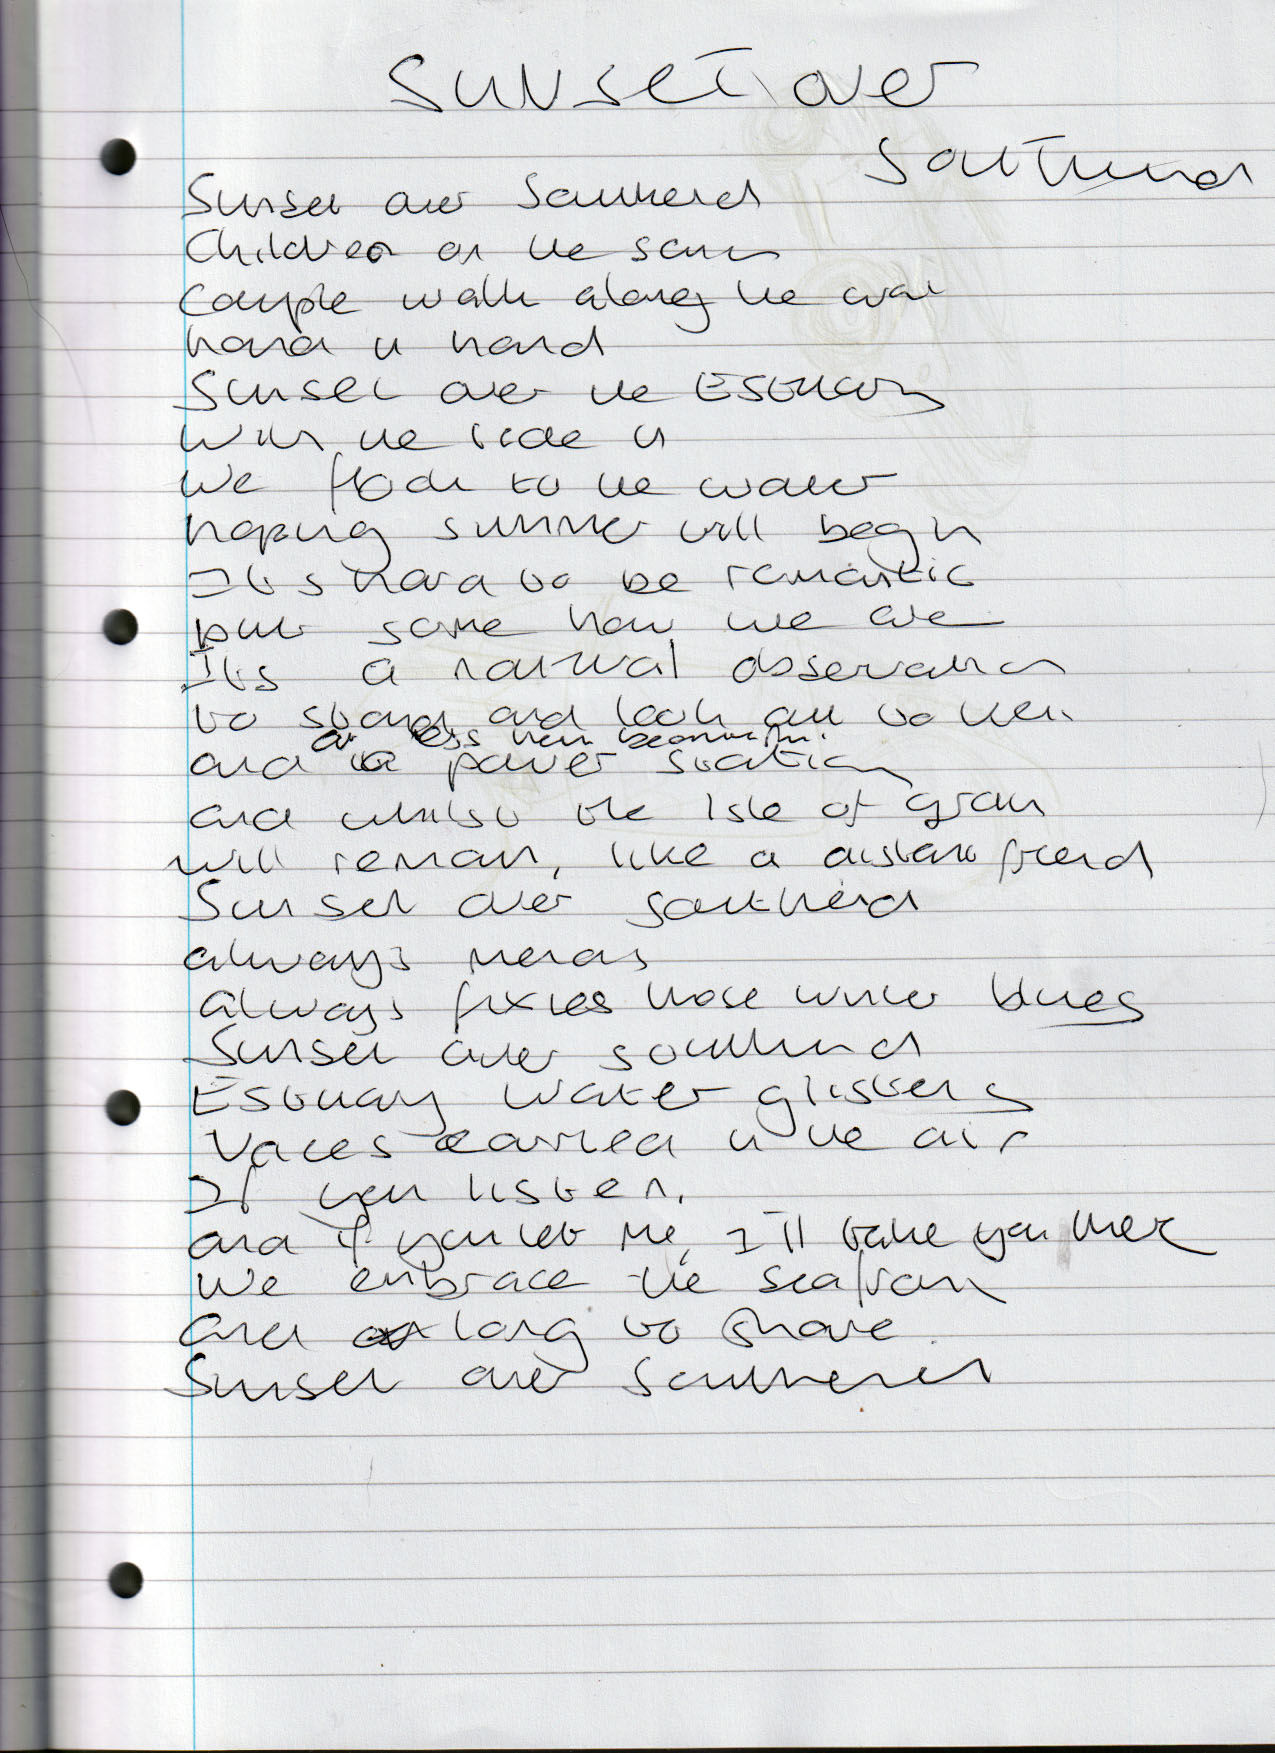 Sunset over
Southend
Sunset over Southend
Children on the sand
Couple walk along the
hand in hand
Sunset over the Estuary
With the tide in
We flock to the water
hoping summer will begin
Its hard to be romantic
but some how we are
Its a natural observation
to stand and look out to
a less than beautiful
and power station
and whilst the Isle of grain
will remain, like a distant friend
Sunset over Southend
always mends
always fixes those winter blues
Sunset over Southend
Estuary water glistens
Voices carried in the air
If you listen.
and if you let me, I'll take you there
We embrace the seafront
and long to share
Sunset over Southend